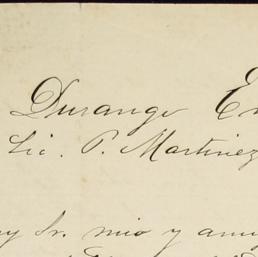 Durango En
Lic. P. Martinez
y Sr. mio y ami